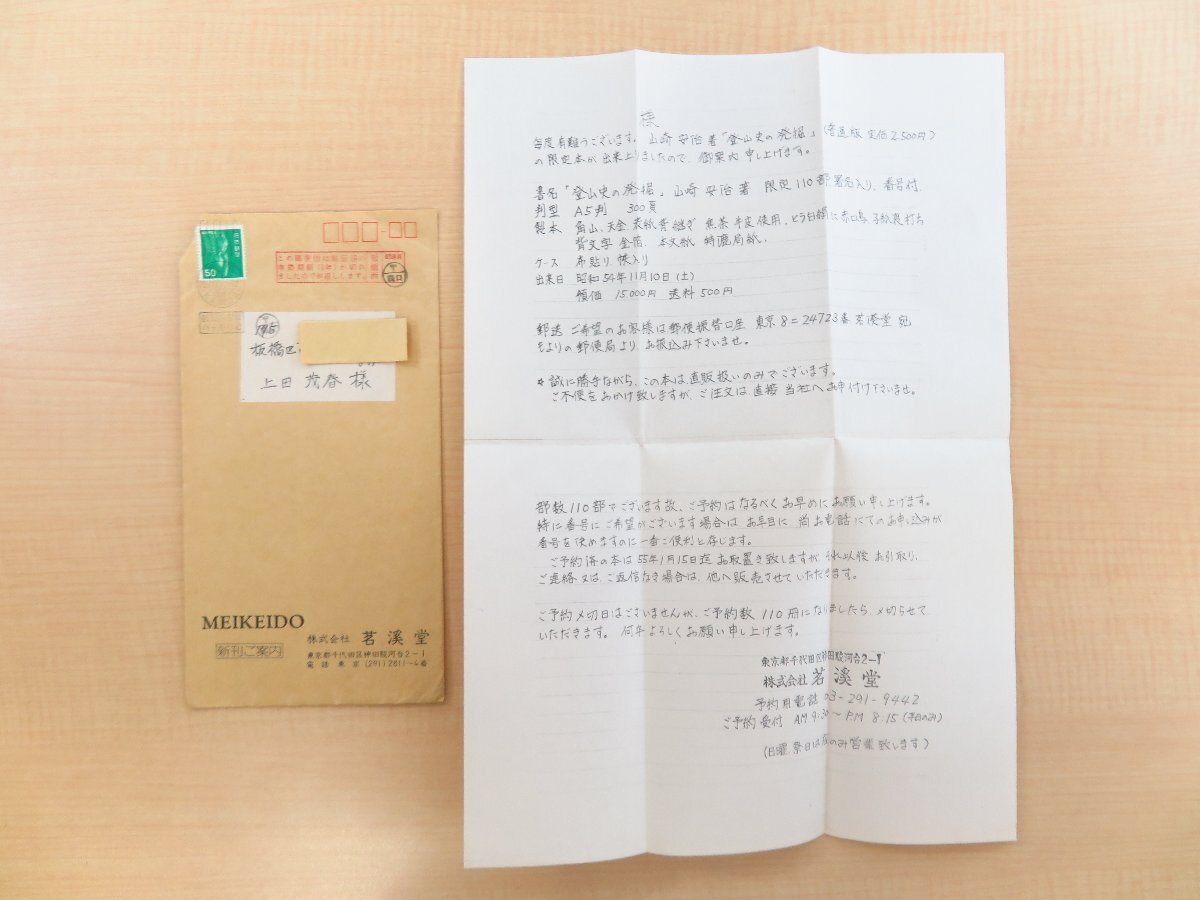 50
この郵便物は
MEIKEIDO
株式会社 茗溪堂
新刊ご案内
東京都千代田区神田駿河台2-1
電話 東京 (291) 2811~4番
板橋区
上田 茂春 様
様
毎度有難うございます。山崎安治著「登山史の発掘」(普通版 定価2,500円)
の限定本が出来上りましたので、御案内申し上げます。
書名「登山史の発掘」山崎安治著 限定110部 署名入り、番号付、
判型 A5判 300頁
製本 角山、天金 表紙背継ぎ 焦茶牛皮使用、ヒラ白絹に 裏打ち
背文字 金箔 本文紙 特漉局紙、
ケース 布貼り 帙入り
出来日 昭和54年11月10日(土)
頒価 15,000円 送料500円
郵送ご希望のお客様は郵便振替口座 東京8=24723番 茗渓堂 宛
もよりの郵便局より、お振込み下さいませ。
*誠に勝手ながら、この本は直販扱いのみでございます。
ご不便をおかけ致しますが、ご注文は直接当社へお申付け下さいませ。
部数110部でございます故、ご予約はなるべくお早めにお願い申し上げます。
特に番号にご希望がございます場合は お早目に 尚お電話にてのお申し込みが
番号を決めますのに一番ご便利と存じます。
ご予約済の本は55年1月15日迄お取置き致しますが、それ以後お引取り、
ご連絡又は、ご返信なき場合は、他へ販売させていただきます。
ご予約〆切日はございませんが、ご予約数110冊になりましたら、〆切らせて
いただきます。何卒よろしくお願い申し上げます。
東京都千代田区神田駿河台2-1
株式会社 茗溪堂
予約用電話 03-291-9442
ご予約受付 AM 9:30~P.M 8:15 (平日のみ)
(日曜、祭日は のみ営業致します)